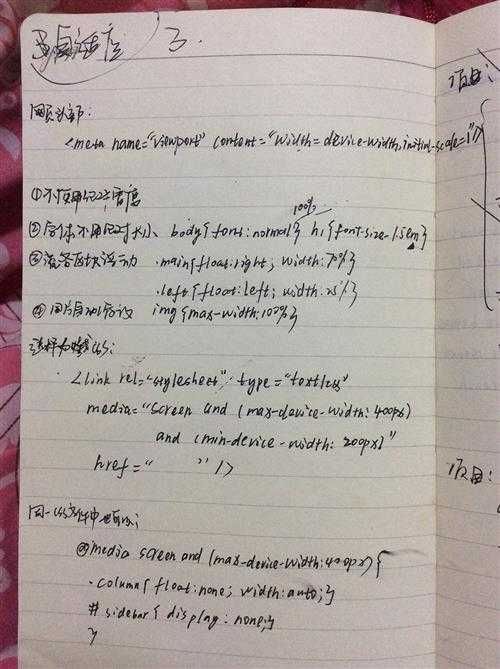 3.
项目:
网页头部:
<meta name="viewport" content="width=device-width,initial-scale=1"/>
①不使用绝对宽度
100%
②字体不用绝对大小、body{font:normal} h1{font-size-1.5em}
③流动 .main{float:right; width:70%}
.left{float:left; width:25%}
④图片自动 img{max-width:100%}
选择加载css:
<link rel="stylesheet" type="text/css"
media="screen and (max-device-width:400px)
and (min-device-width:200px)"
href=" "/>
项目:
同一css文件中也可以:
@media screen and (max-device-width:400px){
.column{float:none; width:auto;}
#sidebar{display:none;}
}